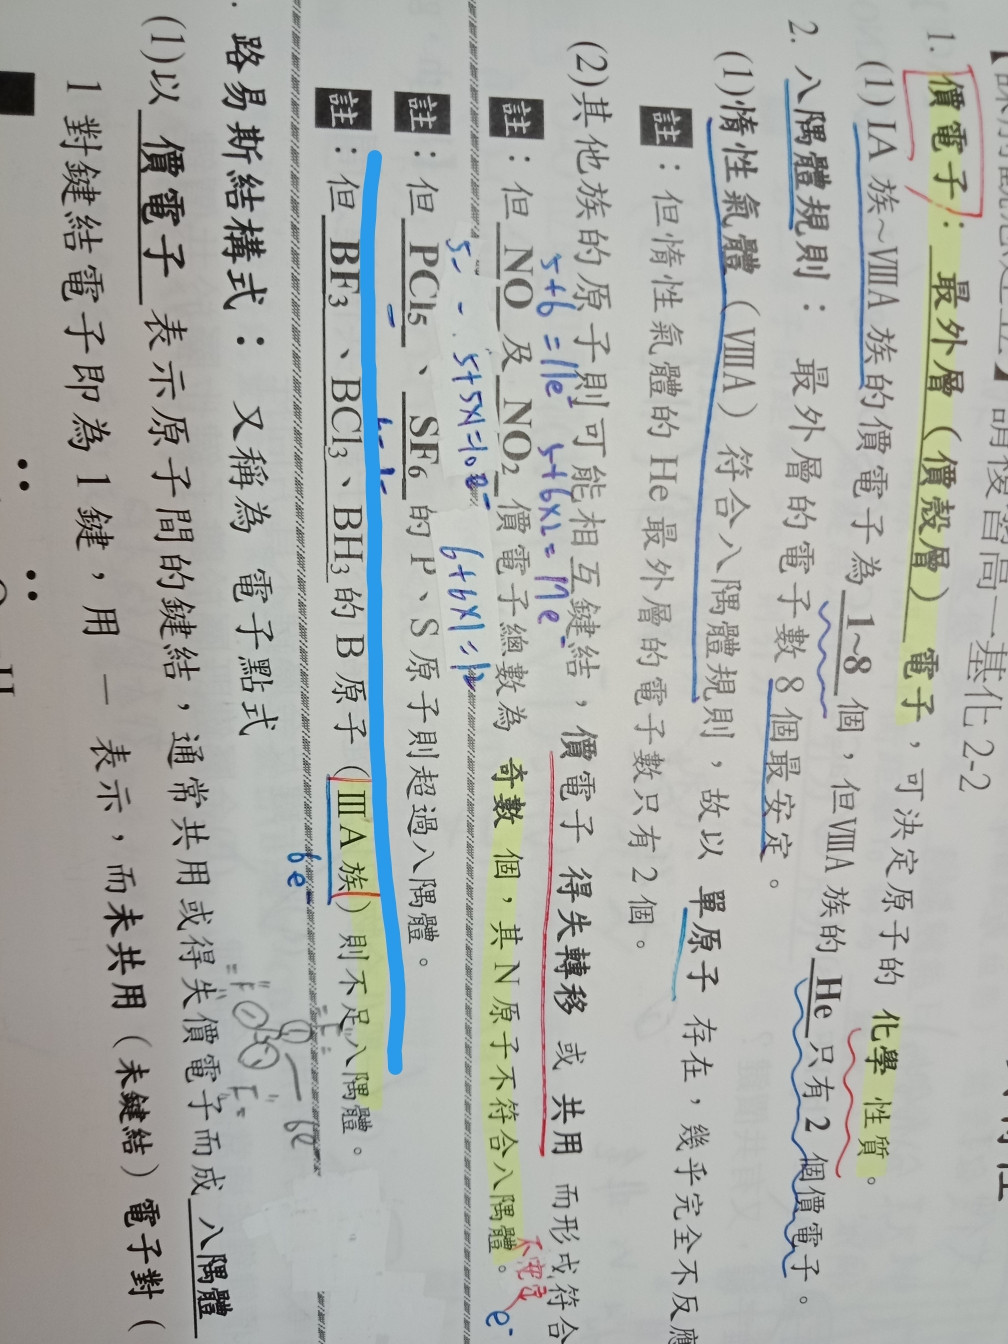 請複習高一基化 2-2
1. 價電子：最外層（價殼層）電子，可決定原子的 化學 性質。
(1) IA 族~ⅧA 族的價電子為 1~8 個，但ⅧA 族的 He 只有 2 個價電子。
2. 八隅體規則： 最外層的電子數 8 個最安定。
(1)惰性氣體（ⅧA）符合八隅體規則，故以 單原子 存在，幾乎完全不反應
註：但惰性氣體的 He 最外層的電子數只有 2 個。
(2)其他族的原子則可能相互鍵結，價電子 得失轉移 或 共用 而形成符合
5+6=11e⁻ 5+6x2=17e⁻
註：但 NO 及 NO₂ 價電子總數為 奇數 個，其 N 原子不符合八隅體。
不穩定
e⁻
5+5x1=10e⁻ 6+6x1=12
註：但 PCl₅、SF₆ 的 P、S 原子則超過八隅體。
註：但 BF₃、BCl₃、BH₃ 的 B 原子（ⅢA 族）則不足八隅體。
6e⁻
6e
路易斯結構式：又稱為 電子點式
(1)以 價電子 表示原子間的鍵結，通常共用或得失價電子而成 八隅體
1 對鍵結電子即為 1 鍵，用 — 表示，而未共用（未鍵結）電子對（